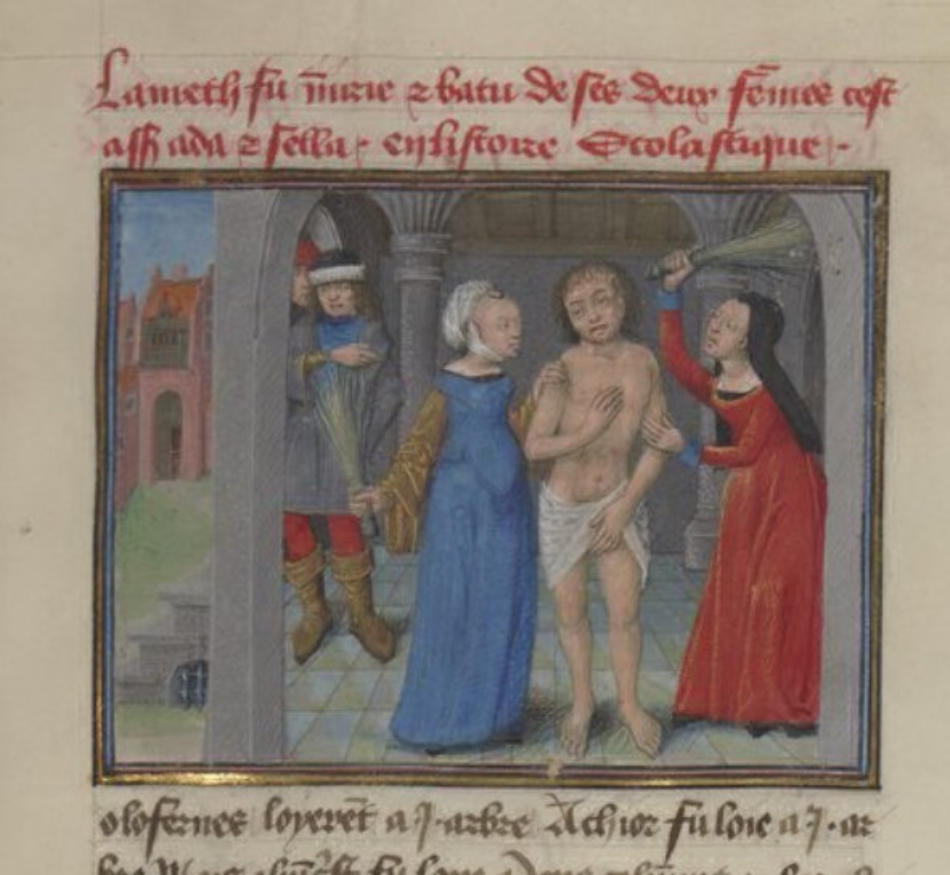 Lameth fu m̄urie ⁊ batu de ses deux fēmes cest
ass ada ⁊ sella · en listoire Scolastique ·
olofernes loyerēt a ·j· arbre Achior fu loie a ·j· ar